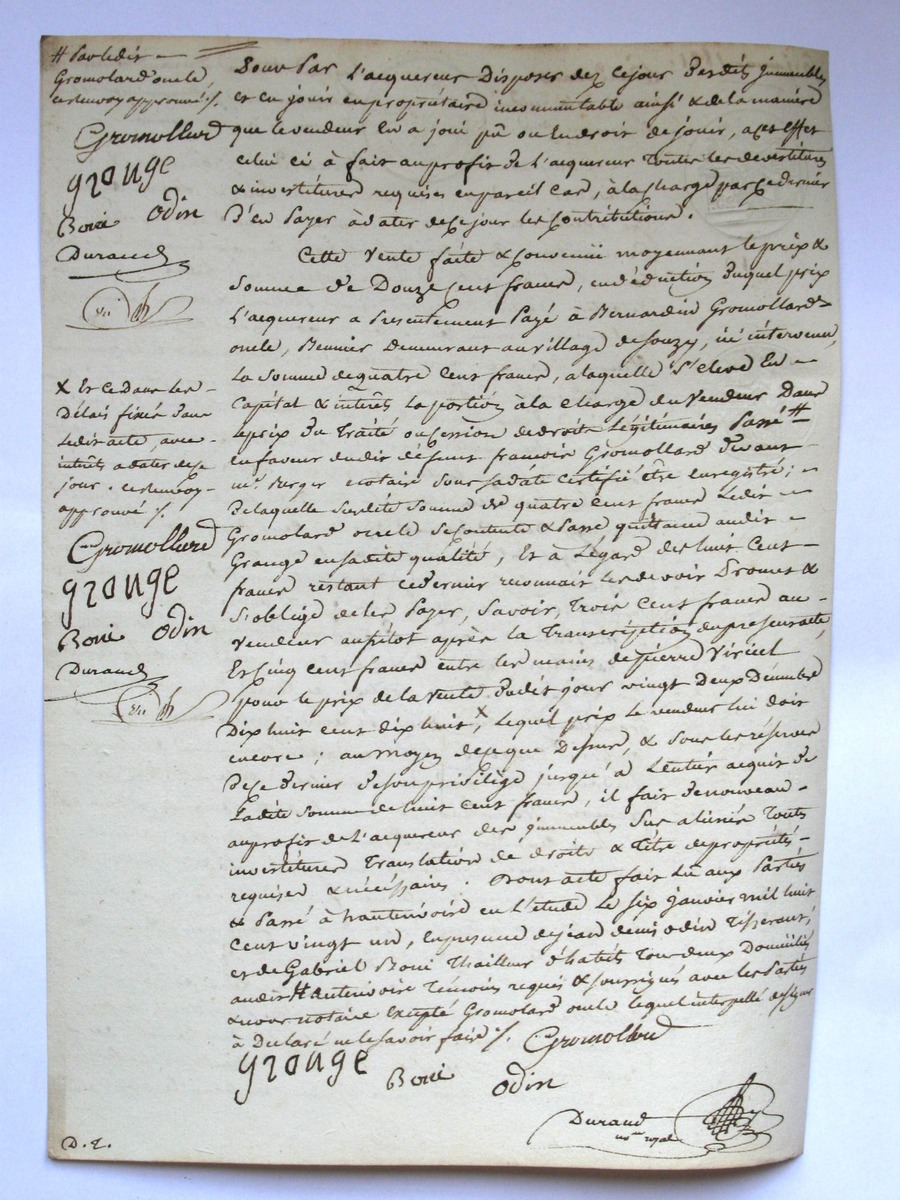 # Par ledit —
Gromolard oncle,
ce renvoy approuvé ./.
Gromollard
grange
Boné Odin
Durand
X Et ce dans les —
Délais fixés dans
ledit acte, avec —
intérêts a dater de ce
jour . ce renvoy —
approuvé ./.
Gromollard
grange
Boné Odin
Durand
Pour Par L'acquereur Disposer dez cejour desdits immeubles
et en jouir en propriétaire incommutable ainsi & de la manière
que le vendeur en a joui pû ou eu droit de jouir, a cet effet
celui ci à fait au profit de L'acquereur toutes les devestitures
& investitures requises en pareil cas, à la charge par ce dernier
D'en Payer à dater de ce jour les Contributions.
Cette vente faite & Convenüe moyennant le prix &
Somme de Douze cent francs, en déduction duquel prix
L'acquereur a Presentement Payé à Bernardin Gromollard
oncle, Meunier Demeurant au village de Souzy, ici intervenu,
La Somme de quatre Cent francs, a laquelle S'eleve En —
Capital & intérêts La portion à la charge du Vendeur Dans
le prix du Traité ou cession de droits Légitimaires Passé #
en faveur dudit défunt francois Gromollard devant
me. Berger notaire sous sa date certifié être enregistré ; —
De laquelle susdite Somme de quatre cent francs Ledit —
Gromolard oncle Se Contente & Passe quittance audit —
Grange en sadite qualité, Et à Légard des huit Cent
francs restant ce dernier reconnait les devoir Promet &
S'oblige de les Payer, Savoir, Trois Cent francs au —
Vendeur aussitot après la Transcription du present acte,
Et Cinq cent francs entre les mains de pierre Viricel
Pour le prix de la vente dudit jour vingt Deux Décembre
Dix huit cent dix huit, X Lequel prix Le vendeur lui doit
encore ; au moyen de ce que Dessus, & Sous les réserves
De ce dernier de son privilège jusqu'à L'entier acquit de
Ladite Somme de huit Cent francs, il fait de nouveau —
au profit de L'acquereur des immeubles Sus aliénés Toutes
investitures Translation de droits & titre de propriétés —
requises & nécessaires . Dont acte fait Lû aux Parties
& Passé à hauterivoire en L'étude Le six janvier mil huit
Cent vingt un, En presence de jean denis odin Tisserant,
et de Gabriel Boni Thailleur d'habits Tous deux Domiciliés
audit Hauterivoire Témoins requis & soussignés avec les Parties
& nous notaire Excepté Gromolard oncle lequel interpellé de signer
à Declaré ne le savoir faire ./. Gromollard
grange Boné Odin
Durand
nore royal
D. L.